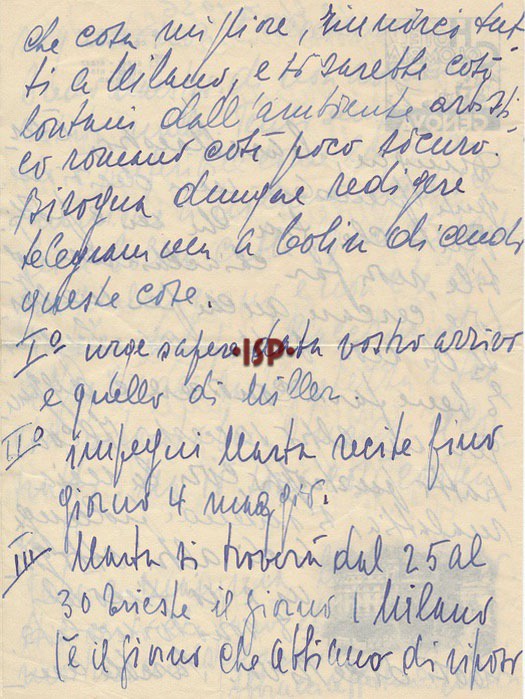 che cosa migliore, riunirci tut-
ti a Milano, e si sarebbe così
lontani dall'ambiente artisti-
co romano così poco sicuro.
Bisogna dunque redigere
telegramma a Colin dicendo
queste cose.
Iº urge sapere data vostro arrivo
e quello di Miller.
IIº impegni Marta recite fino
giorno 4 maggio.
III Marta si troverà dal 25 al
30 Trieste il giorno 1 Milano
(è il giorno che abbiamo di riposo
ISP